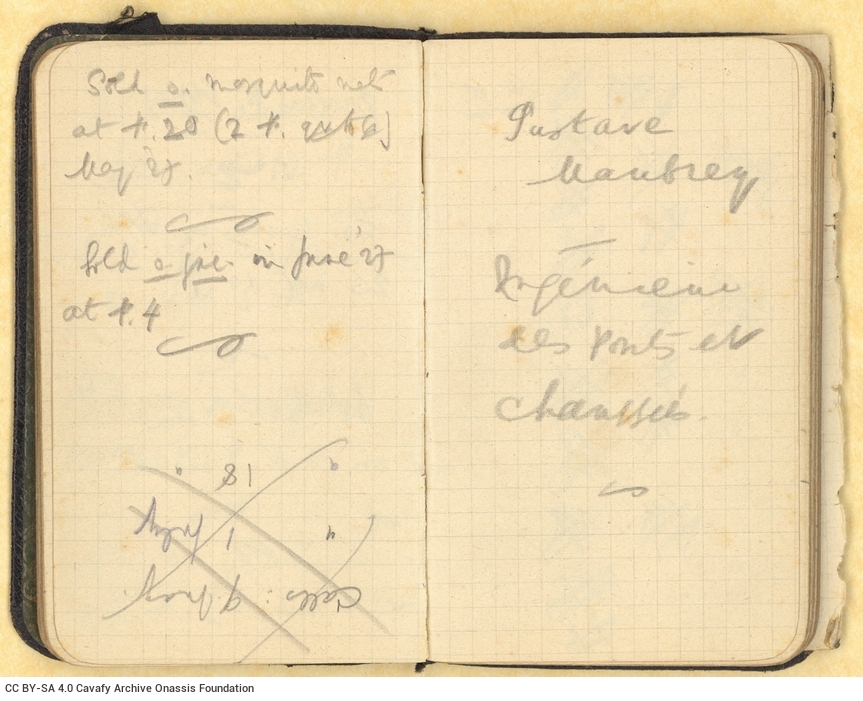 Sold a mosquito net
at P. 20 (2 P.
May '27.
Sold a jar in June '27
at P. 4
" 18 "
" 1
: 9
Gustave
Maubrey
Ingénieur
des Ponts et
Chaussées.
CC BY-SA 4.0 Cavafy Archive Onassis Foundation